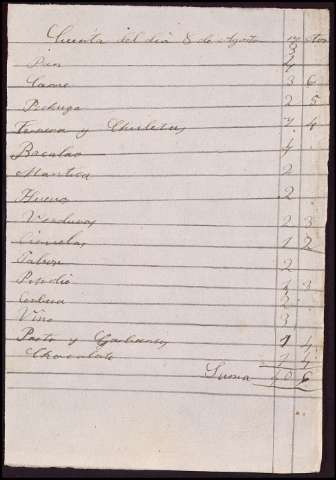 Cuenta del dia 8 de Agosto
Pan 4
Carne 3 6
Pechuga 2 5
Ternera y Chuletas 7 4
Bacalao 4
Manteca 2
Huevos 2
Verduras 2 3
Ciruelas 1 2
Jabon 2
3
Vino 3
Pasta y Garbanzos 1 4
Chocolate
Suma 40 6